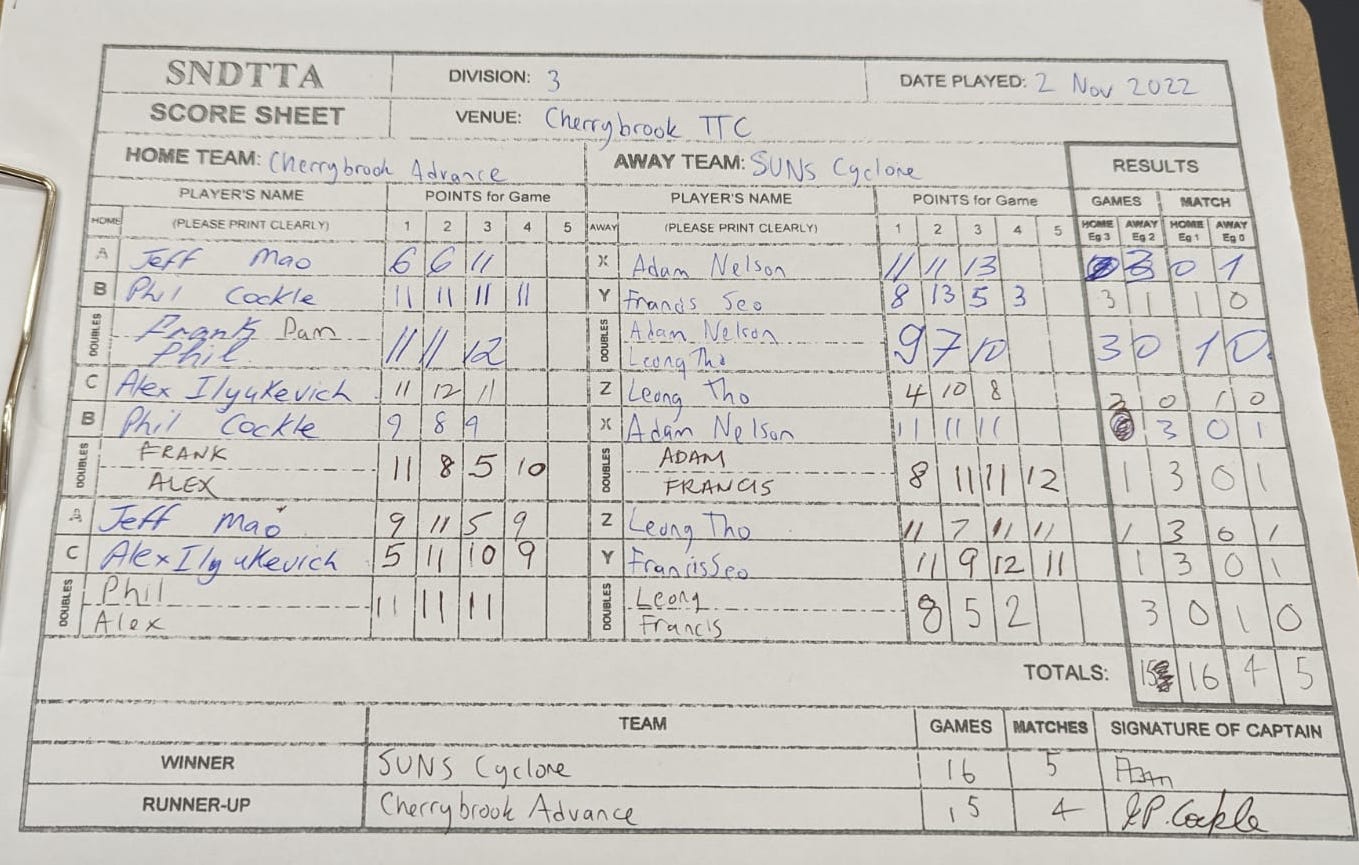 SNDTTA DIVISION: 3 DATE PLAYED: 2 Nov 2022
SCORE SHEET VENUE: Cherrybrook TTC
HOME TEAM: Cherrybrook Advance AWAY TEAM: SUNS Cyclone RESULTS
PLAYER'S NAME POINTS for Game PLAYER'S NAME POINTS for Game GAMES MATCH
HOME (PLEASE PRINT CLEARLY) 1 2 3 4 5 AWAY (PLEASE PRINT CLEARLY) 1 2 3 4 5 HOME Eg 3 AWAY Eg 2 HOME Eg 1 AWAY Eg 0
A Jeff Mao 6 6 11 X Adam Nelson 11 11 13 3 0 1
B Phil Cockle 11 11 11 11 Y Francis Seo 8 13 5 3 3 1 1 0
DOUBLES Frank Pam Adam Nelson
Phil 11 11 12 DOUBLES Leong Tho 9 7 10 3 0 1 0
C Alex Ilyukevich 11 12 11 Z Leong Tho 4 10 8 3 0 1 0
B Phil Cockle 9 8 9 X Adam Nelson 11 11 11 3 0 1
DOUBLES FRANK 11 8 5 10 DOUBLES ADAM 8 11 11 12 1 3 0 1
ALEX FRANCIS
Jeff Mao 9 11 5 9 Z Leong Tho 11 7 11 11 1 3 0 1
C Alex Ilyukevich 5 11 10 9 Y Francis Seo 11 9 12 11 1 3 0 1
DOUBLES Phil 11 11 11 DOUBLES Leong 8 5 2 3 0 1 0
Alex Francis
TOTALS: 15 16 4 5
TEAM GAMES MATCHES SIGNATURE OF CAPTAIN
WINNER SUNS Cyclone 16 5
RUNNER-UP Cherrybrook Advance 15 4 P. Cockle